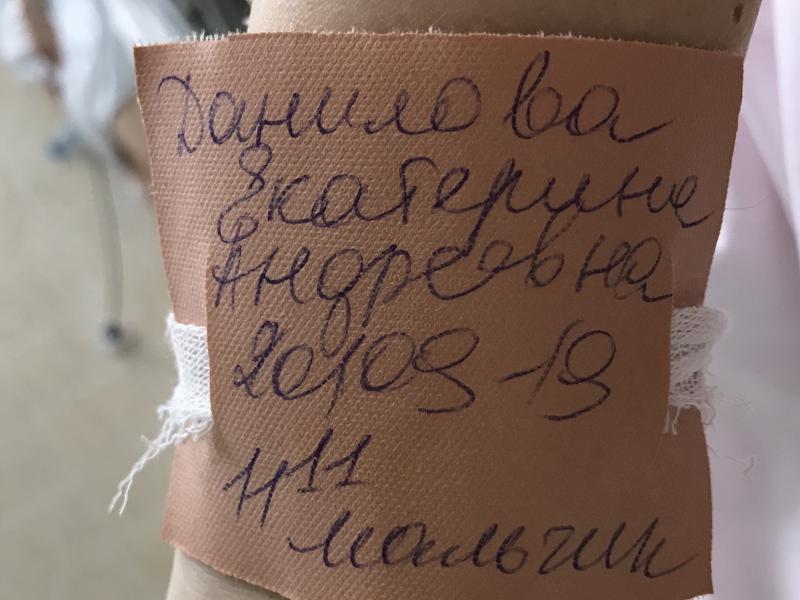 Данилова
Екатерина
Андреевна
20/09-19
н11
мальчик